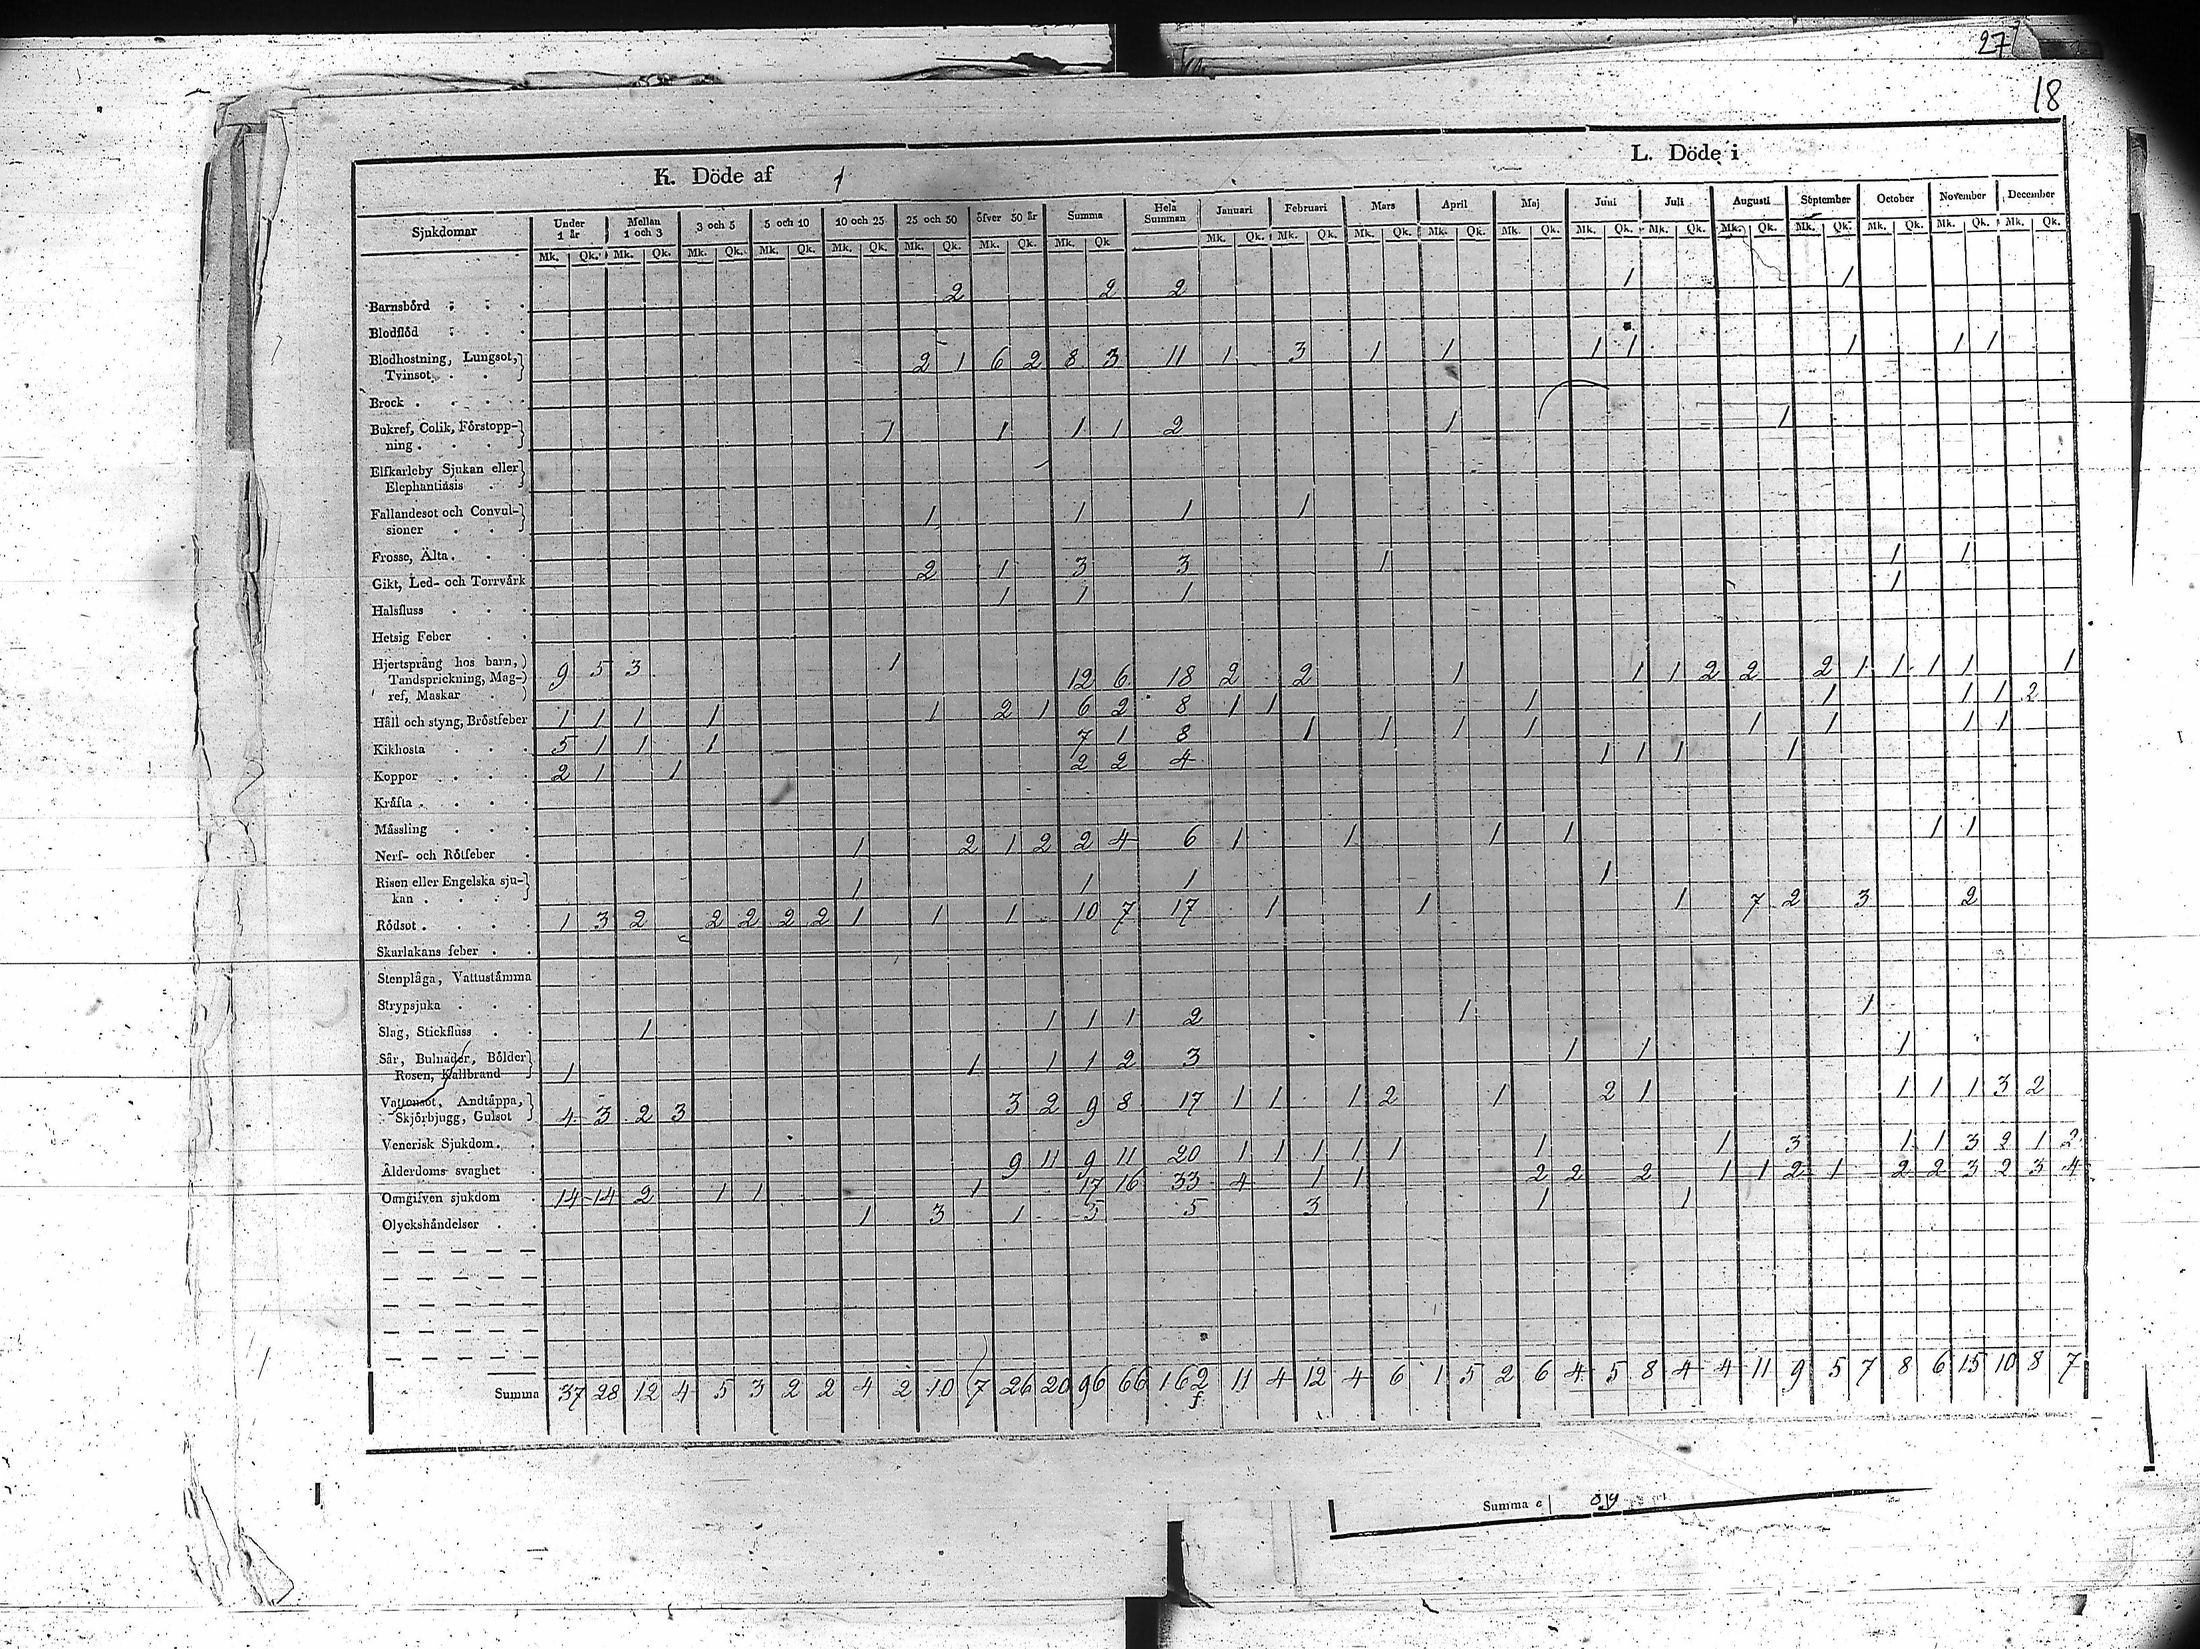 27
18
K. Döde af 1 L. Döde i
Sjukdomar Under 1 år Mellan 1 och 3 3 och 5 5 och 10 10 och 25 25 och 50 öfver 50 år Summa Hela Summan Januari Februari Mars April Maj Juni Juli Augusti September October November December
Mk. Qk. Mk. Qk. Mk. Qk. Mk. Qk. Mk. Qk. Mk. Qk. Mk. Qk. Mk. Qk Mk. Qk. Mk. Qk. Mk. Qk. Mk. Qk. Mk. Qk. Mk. Qk. Mk. Qk. Mk. Qk. Mk. Qk. Mk. Qk. Mk. Qk. Mk. Qk.
Barnsbörd 2 2 2 1 1
Blodflöd
Blodhostning, Lungsot,
Tvinsot 2 1 6 2 8 3 11 1 3 1 1 1 1 1 1 1
Brock
Bukref, Colik, Förstopp-
ning 1 1 1 1 2 1 1
Elfkarleby Sjukan eller
Elephantiasis
Fallandesot och Convul-
sioner 1 1 1 1
Frosse, Älta
Gikt, Led- och Torrvärk 2 1 3 3 1 1 1
Halsfluss 1 1 1 1
Hetsig Feber
Hjertsprång hos barn,
Tandsprickning, Mag-
ref, Maskar 9 5 3 1 12 6 18 2 2 1 1 1 2 2 2 1 1 1 1 1
Håll och styng, Bröstfeber 1 1 1 1 1 2 1 6 2 8 1 1 1 1 1 1 2
Kikhosta 5 1 1 1 7 1 8 1 1 1 1 1 1 1 1
Koppor 2 1 1 2 2 4 1 1 1 1
Kräfta
Mässling
Nerf- och Rötfeber 1 2 1 2 2 4 6 1 1 1 1 1 1
Risen eller Engelska sju-
kan 1 1 1 1
Rödsot 1 3 2 2 2 2 2 1 1 1 10 7 17 1 1 1 7 2 3 2
Skarlakans feber
Stenplåga, Vattustämma
Strypsjuka
Slag, Stickfluss 1 1 1 1 2 1 1
Sår, Bulnader, Bölder
Rosen, Kallbrand 1 1 1 1 2 3 1 1 1
Vattensot, Andtäppa,
Skjörbjugg, Gulsot 4 3 2 3 3 2 9 8 17 1 1 1 2 1 2 1 1 1 1 3 2
Venerisk Sjukdom
Ålderdoms svaghet 9 11 9 11 20 1 1 1 1 1 1 1 3 1 1 3 2 1 2
Omgifven sjukdom 14 14 2 1 1 1 17 16 33 4 1 1 2 2 2 1 1 2 1 2 2 3 2 3 4
Olyckshändelser 1 3 1 5 5 3 1 1
Summa 37 28 12 4 5 3 2 2 4 2 10 7 26 20 96 66 162 11 4 12 4 6 1 5 2 6 4 5 8 4 4 11 9 5 7 8 6 15 10 8 7
Summa